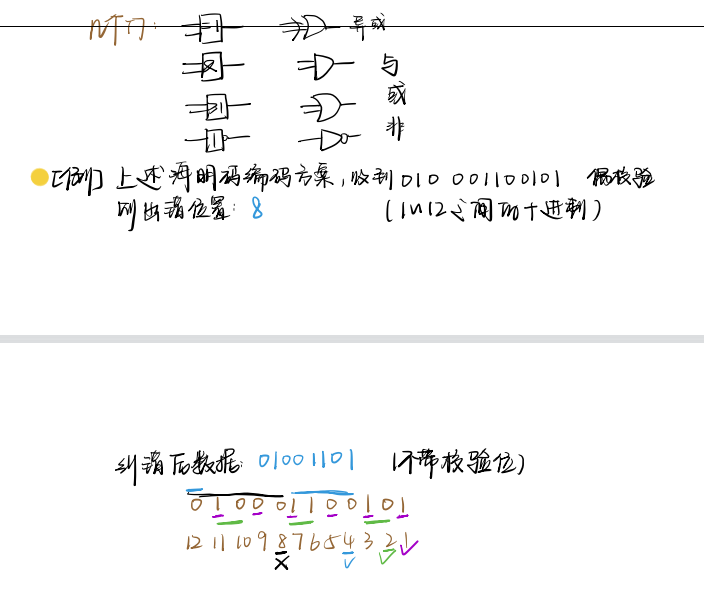 门: =1 异或
& 与
≥1 或
1 非
[例] 上述海明码编码方案,收到010 001100101 偶校验
则出错位置: 8 (1~12之间的十进制)
纠错后数据: 01001101 (不带校验位)
0 1 0 0 0 1 1 0 0 1 0 1
12 11 10 9 8 7 6 5 4 3 2 1
× ✓ ✓ ✓